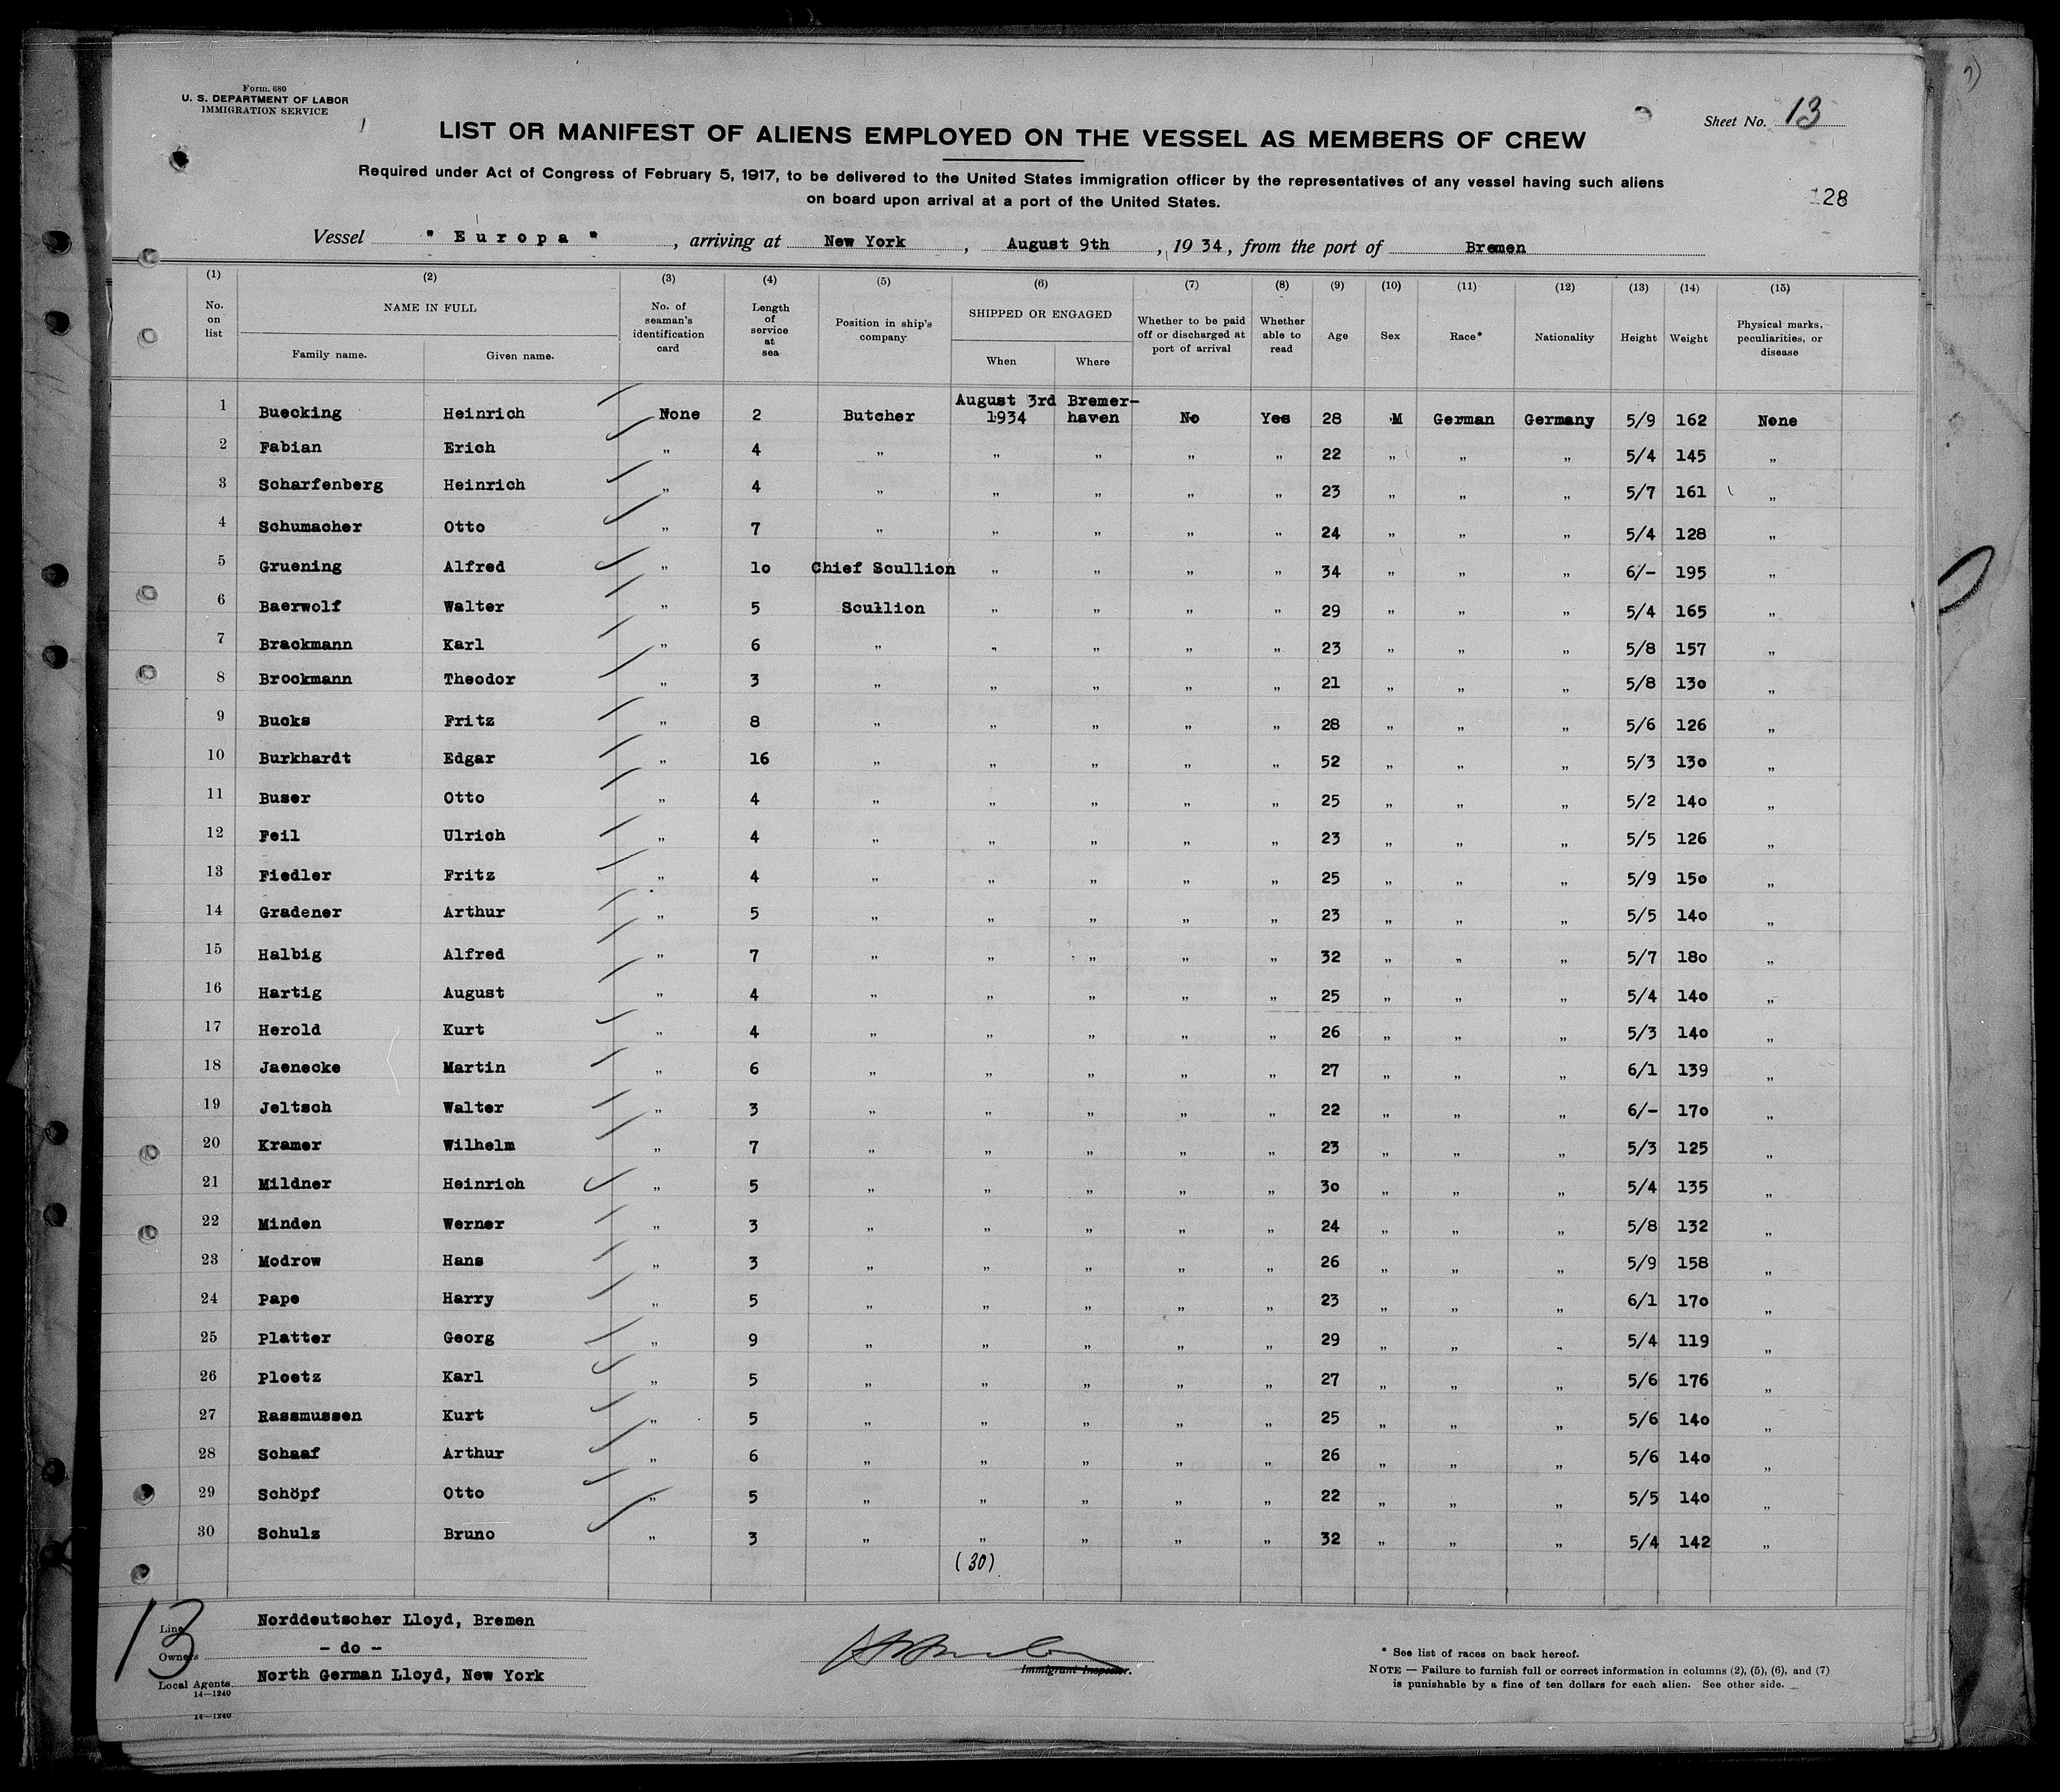 Form. 680
U. S. DEPARTMENT OF LABOR
IMMIGRATION SERVICE
Sheet No. 13
LIST OR MANIFEST OF ALIENS EMPLOYED ON THE VESSEL AS MEMBERS OF CREW
Required under Act of Congress of February 5, 1917, to be delivered to the United States immigration officer by the representatives of any vessel having such aliens
on board upon arrival at a port of the United States.
128
Vessel " Europa " , arriving at New York , August 9th , 19 34 , from the port of Bremen
(1) (2) (3) (4) (5) (6) (7) (8) (9) (10) (11) (12) (13) (14) (15)
No. on list NAME IN FULL Family name. Given name. No. of seaman's identification card Length of service at sea Position in ship's company SHIPPED OR ENGAGED When Where Whether to be paid off or discharged at port of arrival Whether able to read Age Sex Race* Nationality Height Weight Physical marks, peculiarities, or disease
1 Buecking Heinrich None 2 Butcher August 3rd 1934 Bremer-haven No Yes 28 M German Germany 5/9 162 None
2 Fabian Erich " 4 " " " " " 22 " " " 5/4 145 "
3 Scharfenberg Heinrich " 4 " " " " " 23 " " " 5/7 161 "
4 Schumacher Otto " 7 " " " " " 24 " " " 5/4 128 "
5 Gruening Alfred " 10 Chief Scullion " " " " 34 " " " 6/- 195 "
6 Baerwolf Walter " 5 Scullion " " " " 29 " " " 5/4 165 "
7 Brackmann Karl " 6 " " " " " 23 " " " 5/8 157 "
8 Brockmann Theodor " 3 " " " " " 21 " " " 5/8 130 "
9 Bucks Fritz " 8 " " " " " 28 " " " 5/6 126 "
10 Burkhardt Edgar " 16 " " " " " 52 " " " 5/3 130 "
11 Buser Otto " 4 " " " " " 25 " " " 5/2 140 "
12 Feil Ulrich " 4 " " " " " 23 " " " 5/5 126 "
13 Fiedler Fritz " 4 " " " " " 25 " " " 5/9 150 "
14 Gradener Arthur " 5 " " " " " 23 " " " 5/5 140 "
15 Halbig Alfred " 7 " " " " " 32 " " " 5/7 180 "
16 Hartig August " 4 " " " " " 25 " " " 5/4 140 "
17 Herold Kurt " 4 " " " " " 26 " " " 5/3 140 "
18 Jaenecke Martin " 6 " " " " " 27 " " " 6/1 139 "
19 Jeltsch Walter " 3 " " " " " 22 " " " 6/- 170 "
20 Kramer Wilhelm " 7 " " " " " 23 " " " 5/3 125 "
21 Mildner Heinrich " 5 " " " " " 30 " " " 5/4 135 "
22 Minden Werner " 3 " " " " " 24 " " " 5/8 132 "
23 Modrow Hans " 3 " " " " " 26 " " " 5/9 158 "
24 Pape Harry " 5 " " " " " 23 " " " 6/1 170 "
25 Platter Georg " 9 " " " " " 29 " " " 5/4 119 "
26 Ploetz Karl " 5 " " " " " 27 " " " 5/6 176 "
27 Rassmussen Kurt " 5 " " " " " 25 " " " 5/6 140 "
28 Schaaf Arthur " 6 " " " " " 26 " " " 5/6 140 "
29 Schöpf Otto " 5 " " " " " 22 " " " 5/5 140 "
30 Schulz Bruno " 3 " " " " " 32 " " " 5/4 142 "
(30)
13
Line Norddeutscher Lloyd, Bremen
Owners - do -
Local Agents North German Lloyd, New York
14—1240
14—1240
Immigrant Inspector.
* See list of races on back hereof.
NOTE — Failure to furnish full or correct information in columns (2), (5), (6), and (7)
is punishable by a fine of ten dollars for each alien. See other side.